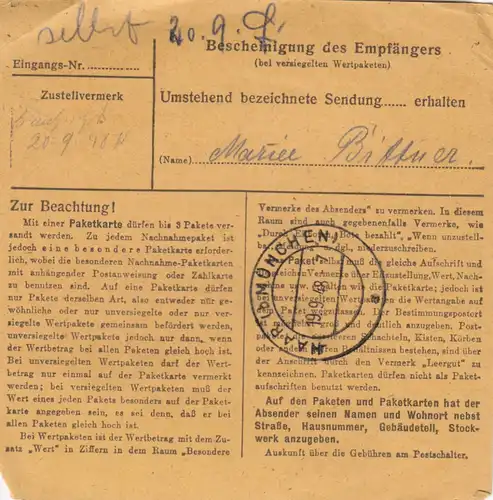 selbst 20. 9.
Bescheinigung des Empfängers
(bei versiegelten Wertpaketen)
Eingangs-Nr.
Zustellvermerk
20. 9. 48
Umstehend bezeichnete Sendung...... erhalten
(Name) Marie Bittner
Zur Beachtung!
Mit einer Paketkarte dürfen bis 3 Pakete ver-
sandt werden. Zu jedem Nachnahmepaket ist
jedoch eine besondere Paketkarte erforder-
lich, wobei die besonderen Nachnahme-Paketkarten
mit anhängender Postanweisung oder Zahlkarte
zu benutzen sind. Auf eine Paketkarte dürfen
nur Pakete derselben Art, also entweder nur ge-
wöhnliche oder nur unversiegelte oder nur ver-
siegelte Wertpakete gemeinsam befördert werden,
unversiegelte Wertpakete jedoch nur dann, wenn
der Wertbetrag bei allen Paketen gleich hoch ist.
Bei unversiegelten Wertpaketen darf der Wert-
betrag nur einmal auf der Paketkarte vermerkt
werden; bei versiegelten Wertpaketen muß der
Wert eines jeden Pakets besonders auf der Paket-
karte angegeben sein, es sei denn, daß er bei
allen Paketen gleich hoch ist.
Bei Wertpaketen ist der Wertbetrag mit dem Zu-
satz „Wert" in Ziffern in dem Raum „Besondere
Vermerke des Absenders" zu vermerken. In diesem
Raum sind auch gegebenenfalls Vermerke, wie
„Durch Eilboten, Bote bezahlt", „Wenn unzustell-
dgl., niederzuschreiben.
Paket selbst muß die gleiche Aufschrift und
gleichen Vermerke, Wert, Nach-
erhalten wie die Paketkarte; jedoch ist
bei unversiegelten Wertpaketen die Wertangabe auf
dem Paket wegzulassen. Der Bestimmungspostort
groß und deutlich anzugeben. Post-
schachteln, Kisten, Körben
oder anderen Behältnissen bestehen, sind über
der Aufschrift durch den Vermerk „Leergut" zu
kennzeichnen. Paketkarten dürfen nicht als Paket-
aufschriften benutzt werden.
Auf den Paketen und Paketkarten hat der
Absender seinen Namen und Wohnort nebst
Straße, Hausnummer, Gebäudeteil, Stock-
werk anzugeben.
Auskunft über die Gebühren am Postschalter.
HAAR (B MÜNCHEN)
19.9.48
a